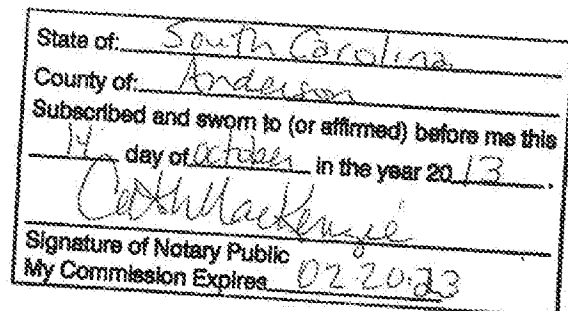 State of: South Carolina
County of: Anderson
Subscribed and sworn to (or affirmed) before me this
14 day of October in the year 2013.
MacKenzie
Signature of Notary Public
My Commission Expires 02.20.23